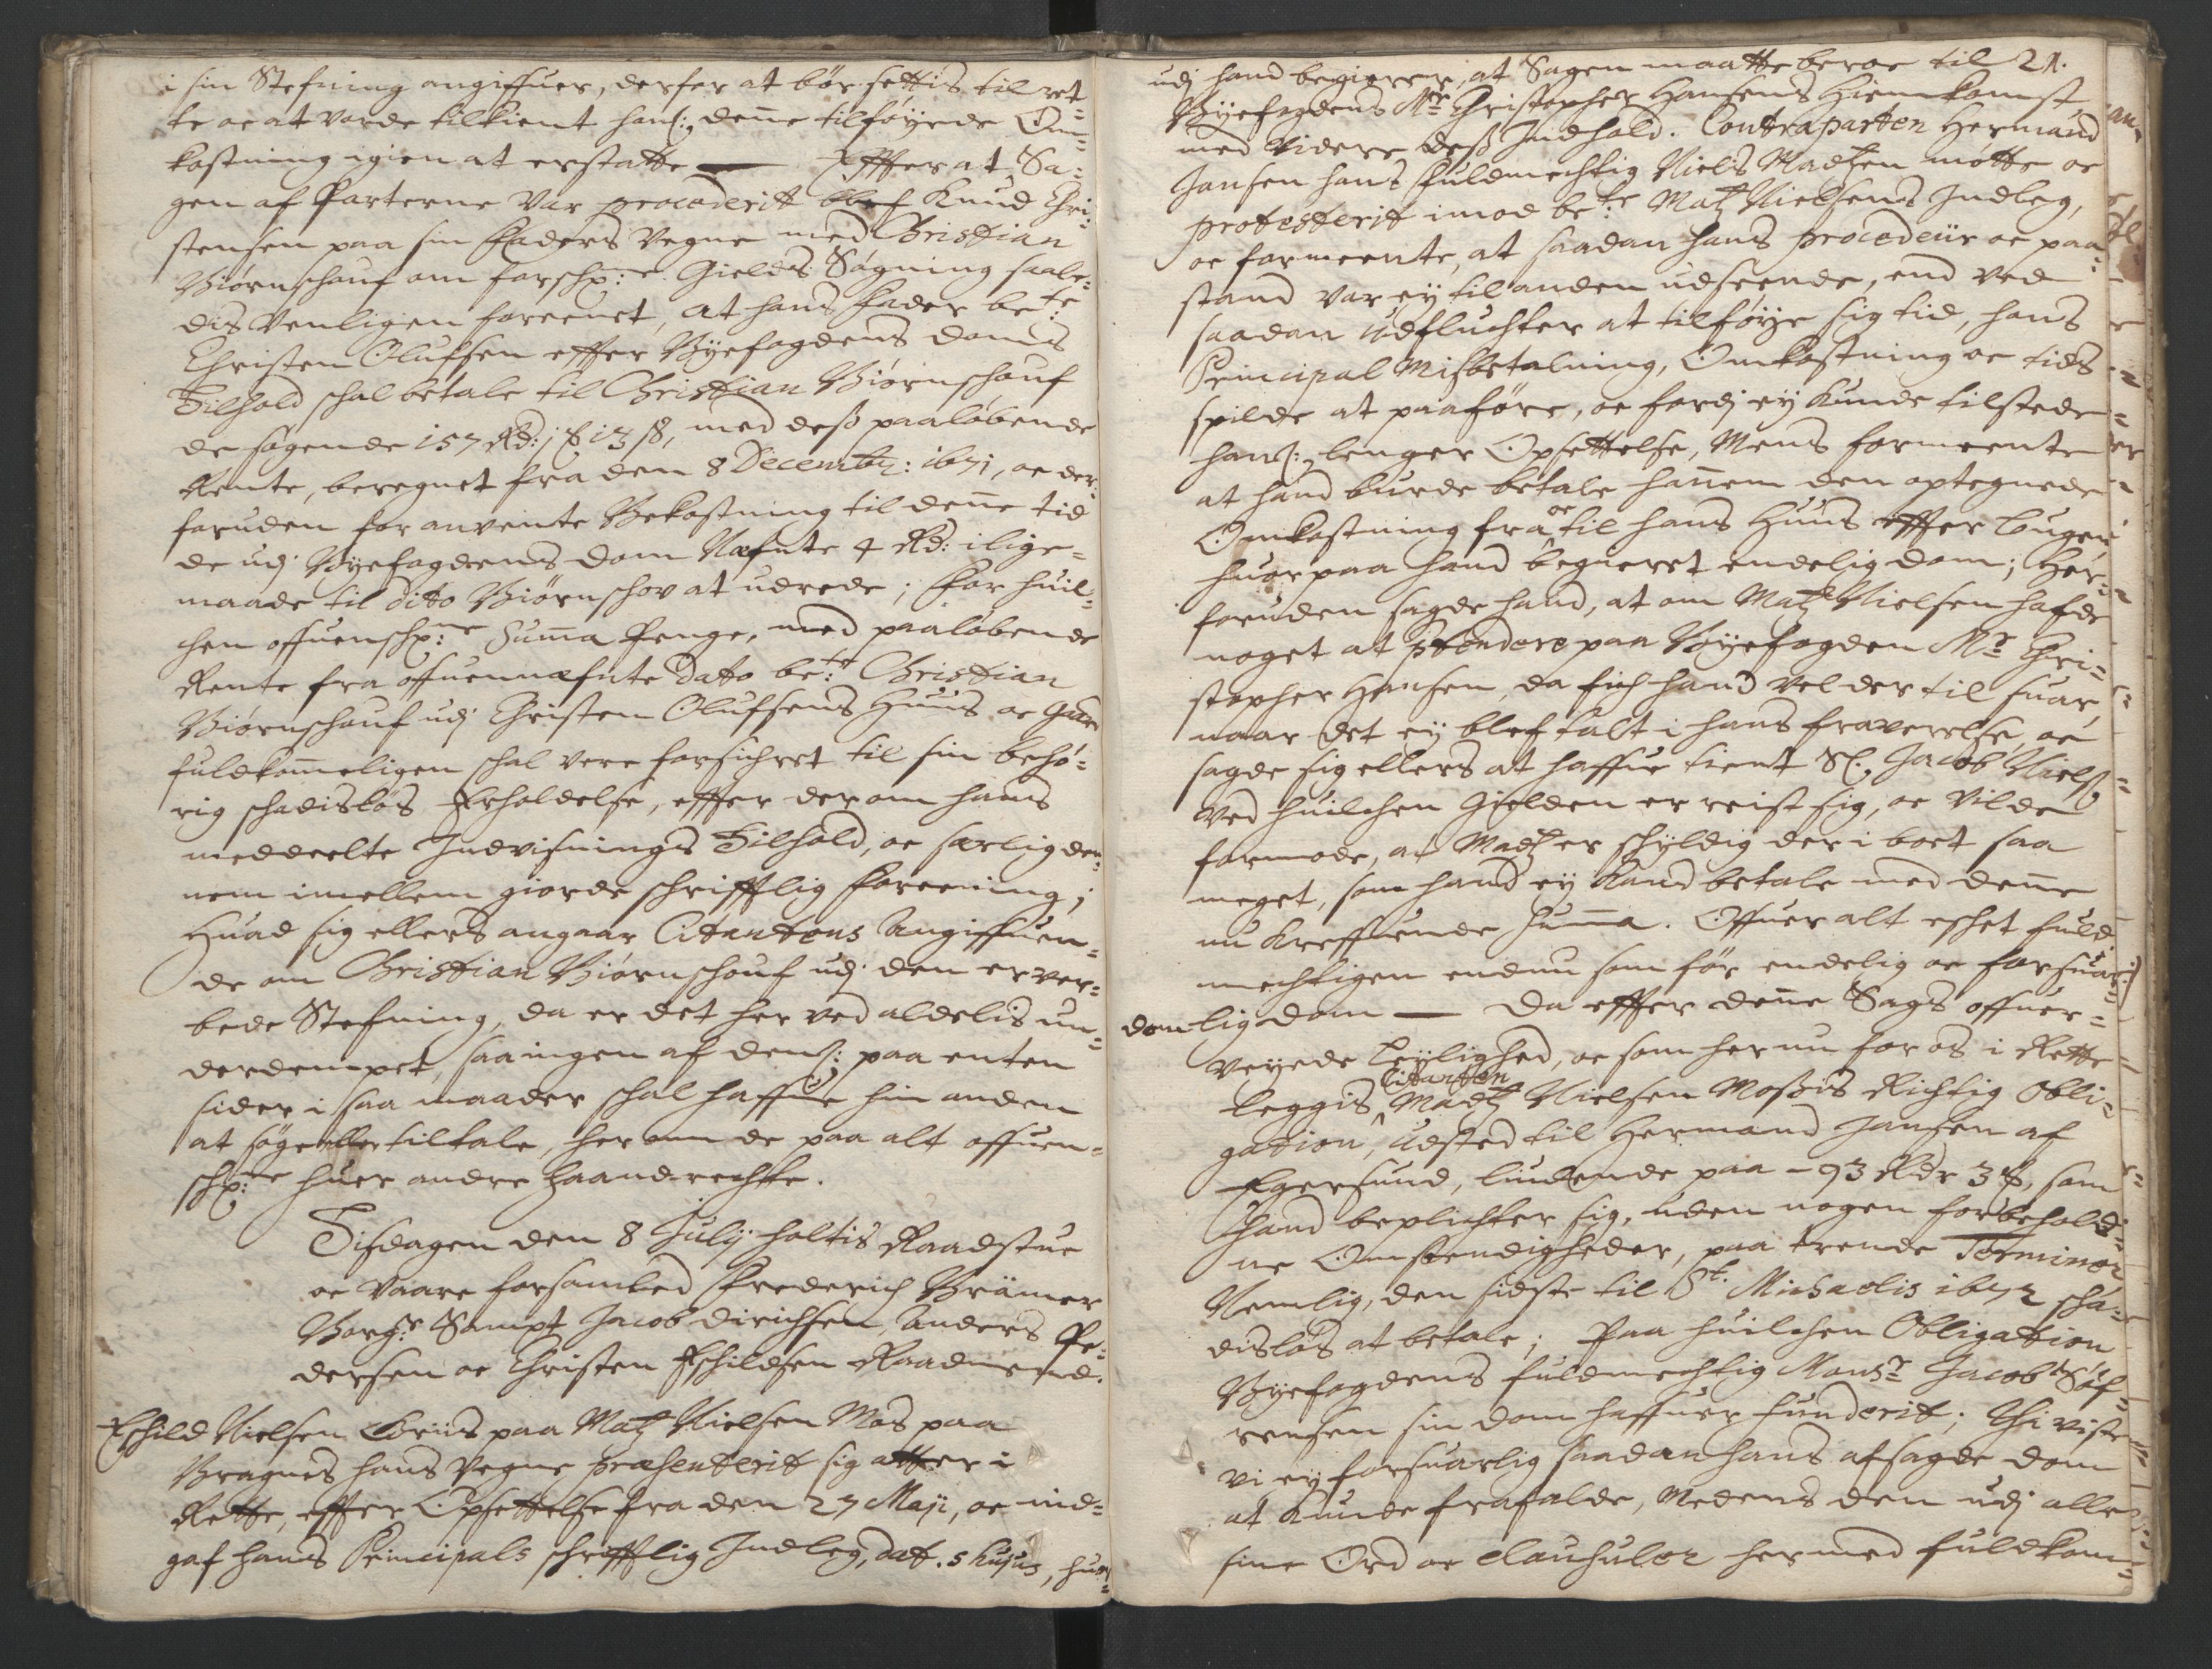 i sin Stefning angiffuer, derfor at bør settis til ret=
te oc at vorde tilkient hans: denne tilføyede Om=
kostning igien at erstatte — Effter at Sa=
gen af Parterne var procederit blef Knud Chri=
stensen paa sin Faders Vegne med Christian
Biørnschouf om forschr:ne Gields Søgning saale=
dis Venligen foreenet, at hans Fader be:te
Christen Olufsen effter Byefogdens doms
Tilhold schal betale til Christian Biørnschouf
de søgende 157 Rd: j ₰ 13 ß, med deß paaløbende
Rente, beregnet fra den 8 Decembr: 1671, oc der=
foruden for anvente Bekostning til denne tid
de udj Byefogdens dom Næfnte 4 Rd: i lige=
maade til dito Biørnschov at udrede; for huil=
chen offuenschr:ne Suma Penge, med paaløbende
Rente fra offuennæfnte dato be:te Christian
Biørnschouf udj Christen Olufsens Huus oc Gaard
fuldkommeligen schal vere forsichret til sin behø=
rig schadisløs Erholdelse, effter derom hans
meddeelte Indvisnings Tilhold, oc særlig den=
nem imellem giorde schrifftlig foreening;
Huad sig ellers angaar Citantens Angiffuen=
de om Christian Biørnschouf udj den erver=
bede Stefning, da er det her ved aldelis un=
derdempet, saa ingen af dens: paa enten
sider i saa maader schal haffue hin anden
at søge eller tiltale, herom de paa alt offuen=
schr:ne huer andre haand rechte.
Tisdagen den 8 Julij holtis Raadstue
oc vaare forsamled Frederich Brämer
Borgr: Sampt Jacob Dirichsen, Anders Pe=
dersen oc Christen Eschildsen Raadmend.
Eschild Nielsen Crüs paa Matz Nielsen Mos paa
Bragnes hans Vegne præsenterit sig atter i
Rette, effter Opsettelse fra den 27 Maji, oc ind=
gaf hans Principals schrifftlig Indleg, dat. 5 hujus, hu=
udj hand begierer, at Sagen maatte beroe til 21.
Byefogdens Mr Christopher Hansens Hiemkomst
med videre deß Indhold. Contraparten Hermand
Jansen hans fuldmechtig Niels Madtzen møtte oc
protesterit imod be:te Matz Nielsens Indleg,
oc formeente, at saadan hans procedeür oc paa=
stand var ey til anden udseende, end ved
saadan Udfluchter at tilføye sig tid, hans
Principal Misbetalning, Omkostning oc tids
spilde at paaføre, oc fordj ey kunde tilstede
hans: lenger Opsettelse, Mens formeente
at hand burde betale hannem den optegnede
Omkostning fra oc til hans Huus effter Lougen,
huorpaa hand begieret endelig dom; Her=
foruden sagde hand, at om Matz Nielsen hafde
noget at prtendere paa Byefogden Mr Chri=
stopher Hansen, da fich hand vel der til suar,
naar det ey blef talt i hans fraverelse, oc
sagde sig ellers at haffue tient Sl. Jacob Nielß
ved huilchen Gielden er reist sig, oc vilde
formode, at Madtz er schyldig der i boet saa
meget, som hand ey kand betale med denne
nu kreffuende suma. Offuer alt eschet fuld=
mechtigen endnu som før endelig oc forsuar=
lig dom — Da effter denne Sags offuer=
dom
veyede Leylighed, oc som her nu for os i Rette
leggis Citanten Madtz Nielsen Moßis Richtig Obli=
gation, Udsted til Hermand Jansen af
Egersund, liudende paa – 93 Rdr 3 ₰, som
hand beplichter sig, uden nogen forbehold=
ne Omstendigheder, paa trende Terminer
Nemlig, den sidste til St. Michaelis 1672 scha=
disløs at betale; Paa huilchen Obligation
Byefogdens fuldmechtig Monsr Jacob Søf=
rensen sin dom haffuer funderit; Thi viste
vi ey forsuarlig saadan hans afsagde dom
at kunde frafalde, Medens den udj alle
sine Ord oc clausuler hermed fuldkom=